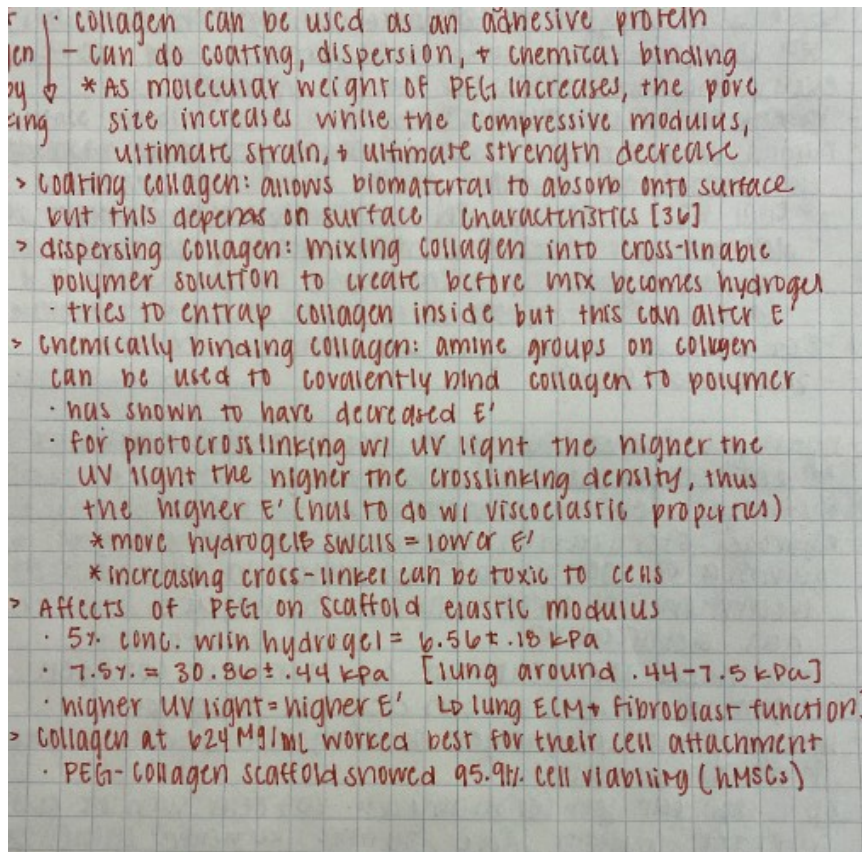 · collagen can be used as an adhesive protein
- can do coating, dispersion, + chemical binding
* As molecular weight of PEG increases, the pore
size increases while the compressive modulus,
ultimate strain, + ultimate strength decrease
> coating collagen: allows biomaterial to absorb onto surface
but this depends on surface characteristics [36]
> dispersing collagen: mixing collagen into cross-linable
polymer solution to create before mix becomes hydrogel
· tries to entrap collagen inside but this can alter E'
> chemically binding collagen: amine groups on collagen
can be used to covalently bind collagen to polymer
· has shown to have decreased E'
· for photocrosslinking w/ UV light the higher the
UV light the higher the crosslinking density, thus
the higher E' (has to do w/ viscoelastic properties)
* more hydrogels swells = lower E'
* increasing cross-linker can be toxic to cells
> Affects of PEG on scaffold elastic modulus
· 5% conc. w/in hydrogel = 6.56 ± .18 kPa
· 7.5% = 30.86 ± .44 kPa [lung around .44-7.5 kPa]
· higher UV light = higher E' ↳ lung ECM + fibroblast function
> collagen at 624 Mg/mL worked best for their cell attachment
· PEG-collagen scaffold showed 95.9% cell viability (hMSCs)